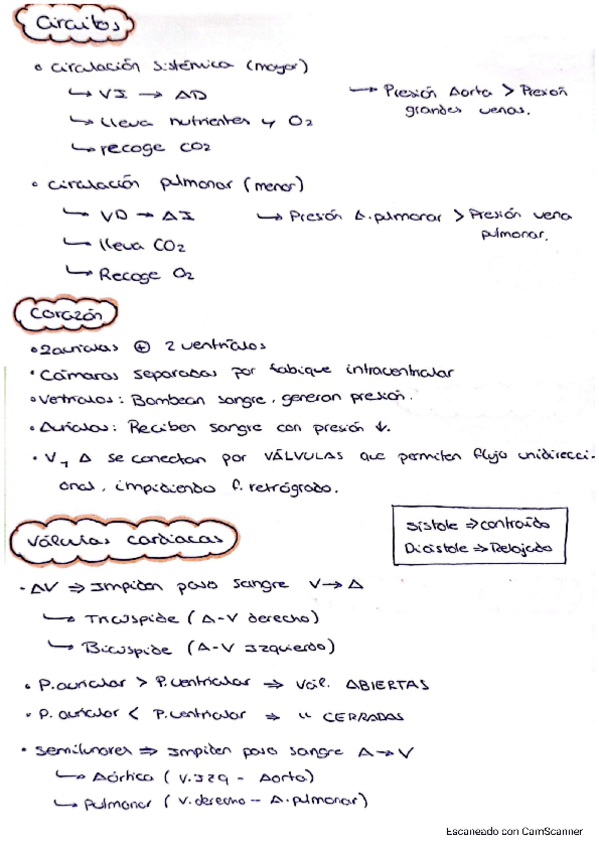 Circuitos
• Circulación sistémica (mayor)
↳ VI → AD
→ Presión Aorta > Presión grandes venas.
↳ lleva nutrientes y O2
↳ recoge CO2
• Circulación pulmonar (menor)
↳ VD → AI
↳ Presión A. pulmonar > Presión vena pulmonar.
↳ lleva CO2
↳ Recoge O2
Corazón
• 2 aurículas ⊕ 2 ventrículos
• Cámaras separadas por tabique intraventricular
• Ventrículos: Bombean sangre, generan presión.
• Aurículas: Reciben sangre con presión ↓.
• V y A se conectan por VÁLVULAS que permiten flujo unidirecci-
onal, impidiendo f. retrógrado.
Sístole ⇒ contraído
Diástole ⇒ Relajado
Válvulas cardiacas
• AV ⇒ Impiden paso sangre V → A
↳ Tricúspide (A-V derecho)
↳ Bicúspide (A-V Izquierdo)
• P. auricular > P. ventricular ⇒ Vál. ABIERTAS
• P. auricular < P. ventricular ⇒ " CERRADAS
• Semilunares ⇒ Impiden paso sangre A → V
↳ Aórtica (V. Izq - Aorta)
↳ Pulmonar (V. derecho - A. pulmonar)
Escaneado con CamScanner